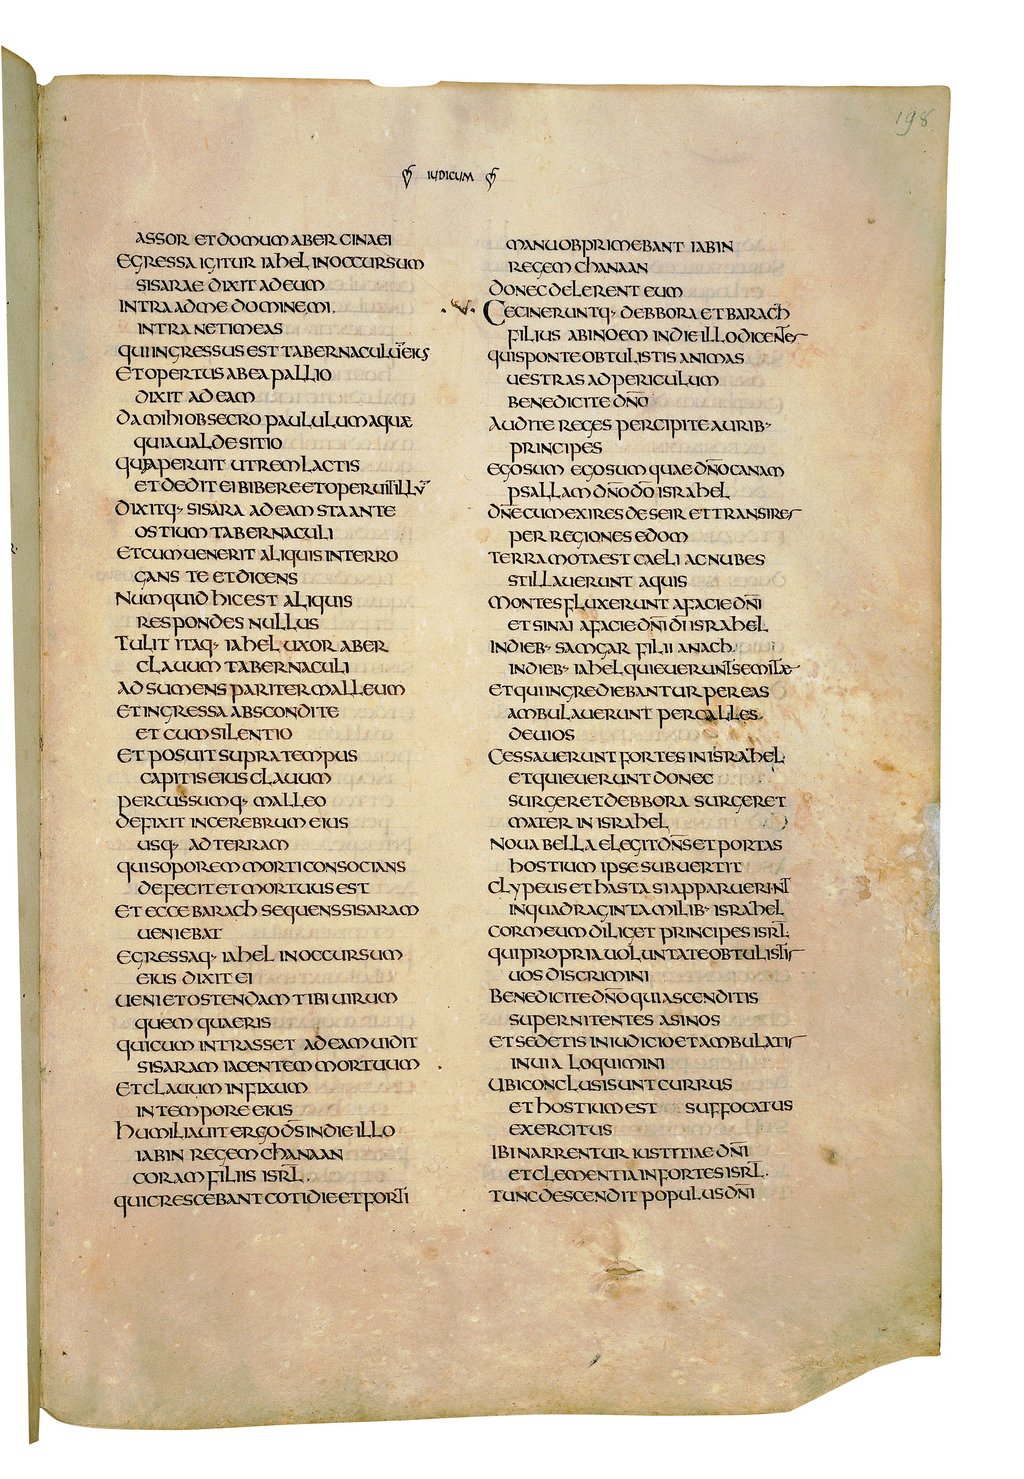 198
IUDICUM
ASSOR ET DOMUM ABER CINAEI
EGRESSA IGITUR IAHEL IN OCCURSUM
SISARAE DIXIT AD EUM
INTRA AD ME DOMINE MI.
INTRA NE TIMEAS
QUI INGRESSUS EST TABERNACULŪ EIUS
ET OPERTUS AB EA PALLIO
DIXIT AD EAM
DA MIHI OBSECRO PAULULUM AQUAE
QUIA UALDE SITIO
QUAE APERUIT UTREM LACTIS
ET DEDIT EI BIBERE ET OPERUIT ILLŪ
DIXITQ· SISARA AD EAM STA ANTE
OSTIUM TABERNACULI
ET CUM UENERIT ALIQUIS INTERRO
GANS TE ET DICENS
NUMQUID HIC EST ALIQUIS
RESPONDES NULLUS
TULIT ITAQ· IAHEL UXOR ABER
CLAUUM TABERNACULI
ADSUMENS PARITER MALLEUM
ET INGRESSA ABSCONDITE
ET CUM SILENTIO
ET POSUIT SUPRA TEMPUS
CAPITIS EIUS CLAUUM
PERCUSSUMQ· MALLEO
DEFIXIT IN CEREBRUM EIUS
USQ· AD TERRAM
QUI SOPOREM MORTI CONSOCIANS
DEFECIT ET MORTUUS EST
ET ECCE BARACH SEQUENS SISARAM
UENIEBAT
EGRESSAQ· IAHEL IN OCCURSUM
EIUS DIXIT EI
UENI ET OSTENDAM TIBI UIRUM
QUEM QUAERIS
QUI CUM INTRASSET AD EAM UIDIT
SISARAM IACENTEM MORTUUM
ET CLAUUM INFIXUM
IN TEMPORE EIUS
HUMILIAUIT ERGO D̄S IN DIE ILLO
IABIN REGEM CHANAAN
CORAM FILIIS ISRL̄.
QUI CRESCEBANT COTIDIE ET FORTI
MANU OBPRIMEBANT IABIN
REGEM CHANAAN
DONEC DELERENT EUM
·V· CECINERUNTQ· DEBBORA ET BARACH
FILIUS ABINOEM IN DIE ILLO DICENTES
QUI SPONTE OBTULISTIS ANIMAS
UESTRAS AD PERICULUM
BENEDICITE DN̄O
AUDITE REGES PERCIPITE AURIB·
PRINCIPES
EGO SUM EGO SUM QUAE DN̄O CANAM
PSALLAM DN̄O DŌ ISRAHEL
DN̄E CUM EXIRES DE SEIR ET TRANSIRES
PER REGIONES EDOM
TERRA MOTA EST CAELI AC NUBES
STILLAUERUNT AQUIS
MONTES FLUXERUNT A FACIE DN̄I
ET SINAI A FACIE DN̄I DĪ ISRAHEL
IN DIEB· SAMGAR FILII ANACH.
IN DIEB· IAHEL QUIEUERUNT SEMITAE
ET QUI INGREDIEBANTUR PER EAS
AMBULAUERUNT PER CALLES
DEUIOS
CESSAUERUNT FORTES IN ISRAHEL
ET QUIEUERUNT DONEC
SURGERET DEBBORA SURGERET
MATER IN ISRAHEL
NOUA BELLA ELEGIT DN̄S ET PORTAS
HOSTIUM IPSE SUBUERTIT
CLYPEUS ET HASTA SI APPARUERINT
IN QUADRAGINTA MILIB· ISRAHEL
COR MEUM DILIGET PRINCIPES ISRL̄
QUI PROPRIA UOLUNTATE OBTULISTIS
UOS DISCRIMINI
BENEDICITE DN̄O QUI ASCENDITIS
SUPER NITENTES ASINOS
ET SEDETIS IN IUDICIO ET AMBULATIS
IN UIA LOQUIMINI
UBI CONCLUSI SUNT CURRUS
ET HOSTIUM EST SUFFOCATUS
EXERCITUS
IBI NARRENTUR IUSTITIAE DN̄I
ET CLEMENTIA IN FORTES ISRL̄.
TUNC DESCENDIT POPULUS DN̄I